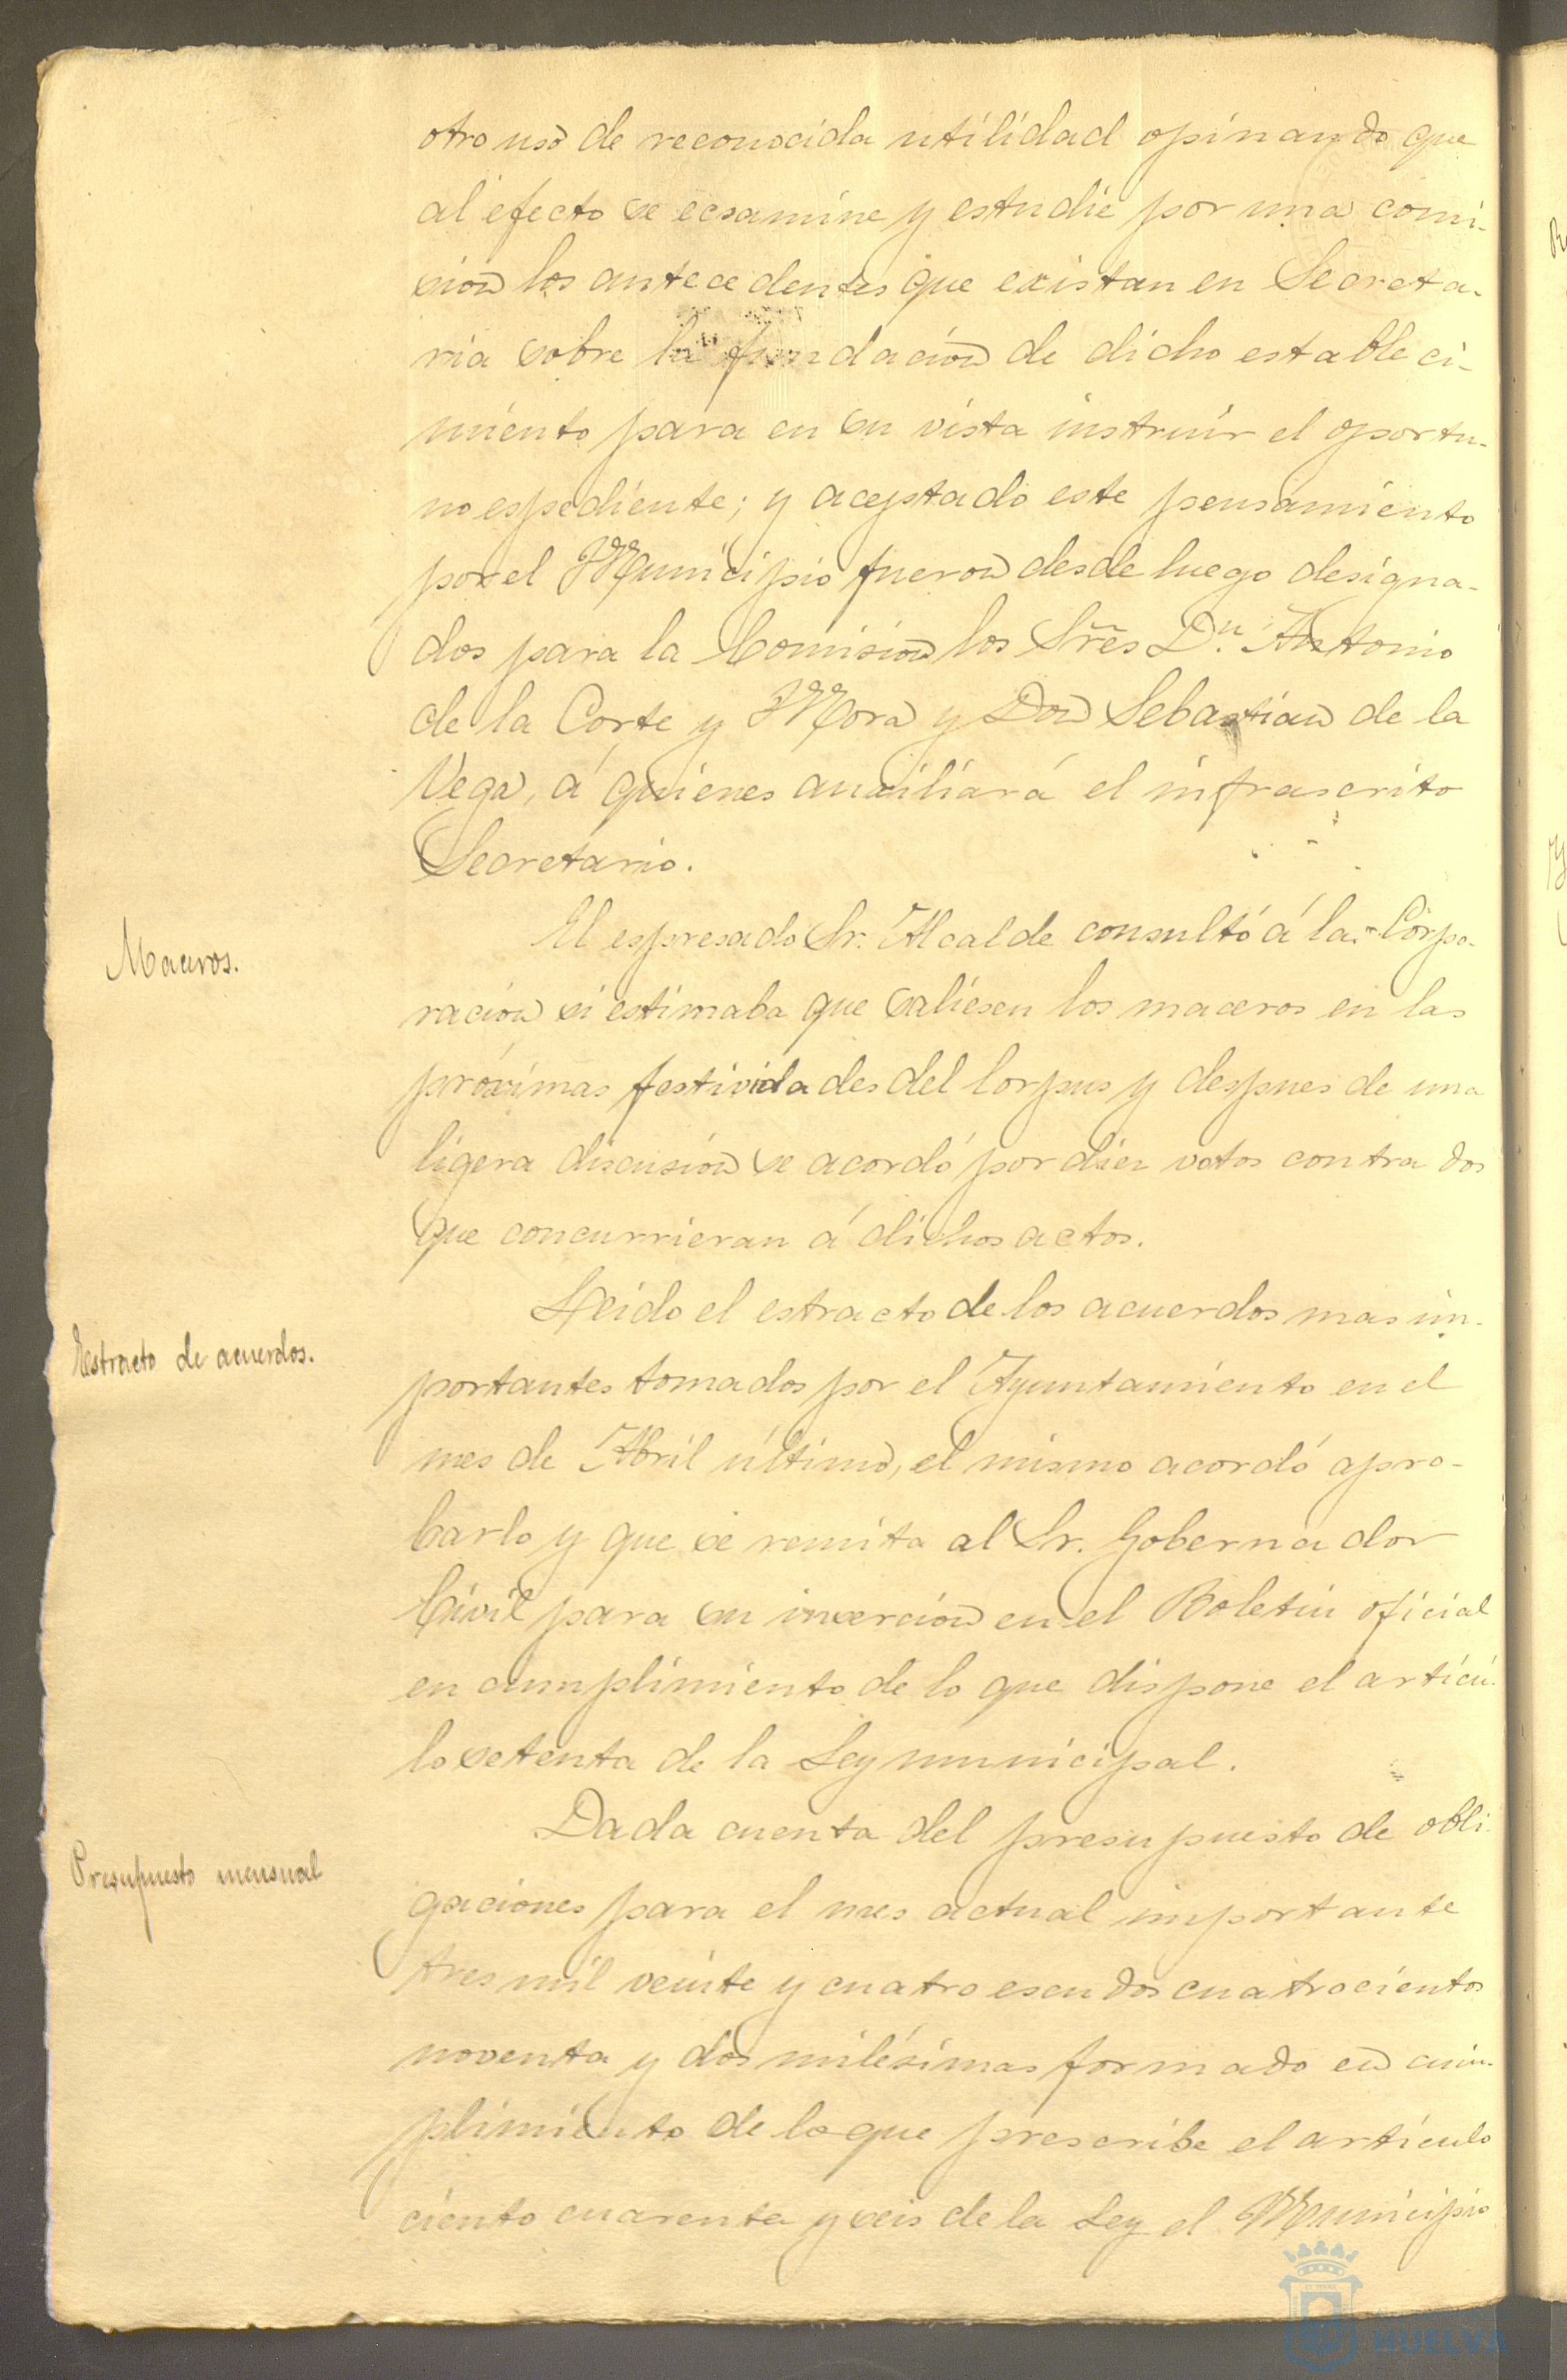 otro uso de reconocida utilidad opinando que
al efecto se ecsamine y estudie por una comi-
sion los antecedentes que existan en Secreta-
ria sobre la fundacion de dicho estableci-
miento para en su vista instruir el oportu-
no espediente; y aceptado este pensamiento
por el Municipio fueron desde luego designa-
dos para la Comision los Sres Dn. Antonio
de la Corte y Mora y Don Sebastian de la
Vega, á quienes auxiliará el infrascrito
Secretario.
Maceros.
El espresado Sr. Alcalde consultó á la Corpo-
racion si estimaba que saliesen los maceros en las
próximas festividades del Corpus y despues de una
ligera discusion se acordó por diez votos contra dos
que concurrieran á dichos actos.
Estracto de acuerdos.
Leido el estracto de los acuerdos mas im-
portantes tomados por el Ayuntamiento en el
mes de Abril último, el mismo acordó apro-
barlo y que se remita al Sr. Gobernador
Civil para su insercion en el Boletin oficial
en cumplimiento de lo que dispone el articu-
lo setenta de la Ley municipal.
Presupuesto mensual
Dada cuenta del presupuesto de obli-
gaciones para el mes actual importante
tres mil veinte y cuatro escudos cuatrocientos
noventa y dos milésimas formado en cum-
plimiento de lo que prescribe el articulo
ciento cuarenta y seis de la Ley el Municipio
HUELVA